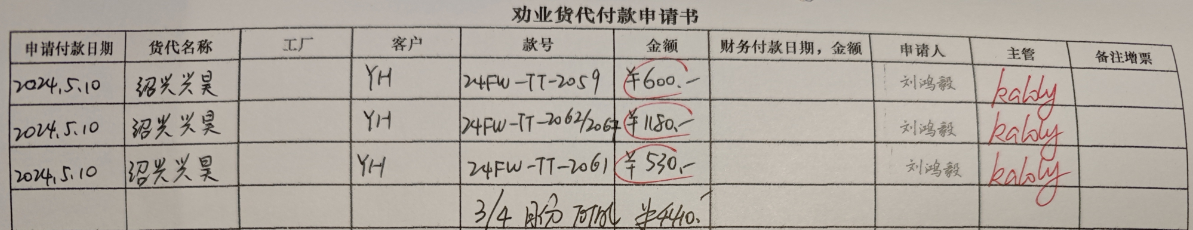 劝业货代付款申请书
申请付款日期 货代名称 工厂 客户 款号 金额 财务付款日期，金额 申请人 主管 备注增票
2024.5.10 绍兴兴昊 YH 24FW-TT-2059 ¥600.- 刘鸿毅 kaldy
2024.5.10 绍兴兴昊 YH 24FW-TT-2062/2067 ¥1180.- 刘鸿毅 kaldy
2024.5.10 绍兴兴昊 YH 24FW-TT-2061 ¥530.- 刘鸿毅 kaldy
3/4 月份 TOTAL ¥4410.-